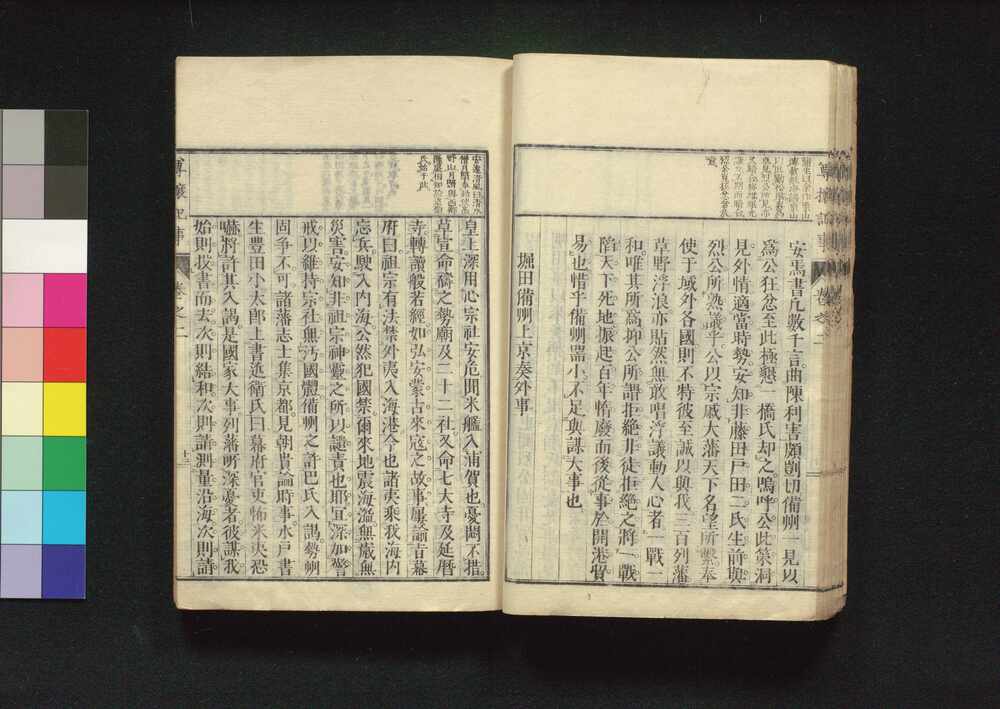 安焉書凡數千言曲陳利害頗剴切備州一見以
爲公狂忿至此極懇一橋氏却之嗚呼公此策洞
見外情適當時勢安知非藤田戸田二氏生前與
烈公所熟議乎公以宗戚大藩天下名望所繫奉
使于域外各國則不特彼至誠以與我三百列藩
草野浮浪亦貼然無敢唱浮議動人心者一戰一
和唯其所爲抑公所謂拒絶非徒拒絶之將一戰
陷天下死地振起百年惰廢而後從事於開港貿
易也惜乎備州器小不足與謀大事也
堀田備州上京奏外事
皇上深用心宗社安危聞米艦入浦賀也憂悶不措
草宣命禱之勢廟及二十二社又命七大寺及延暦
寺轉讀般若經如弘安蒙古來寇之故事屢諭旨幕
府曰祖宗有法禁外夷入海港今也諸夷乘我海内
忘兵駛入内海公然犯國禁爾來地震海溢無歳無
災害安知非祖宗神靈之所以譴責也耶宜深加警
戒以維持宗社無汚國體備州之許巴氏入謁勢州
固爭不可諸藩志士集京都見朝貴論時事水戸書
生豊田小太郎上書近衛氏曰幕府官吏怖米夷恐
嚇將許其入謁是國家大事列藩所深憂者彼謀我
始則投書而去次則結和次則請測量沿海次則請
尊攘紀事
卷之二
十三